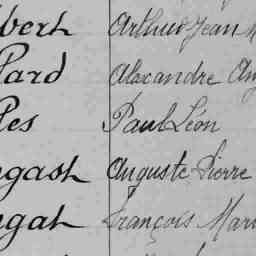 bert Arthur Jean M
lard Alexandre Aug
les Paul Léon
ngash Auguste Pierre
ngat François Mari